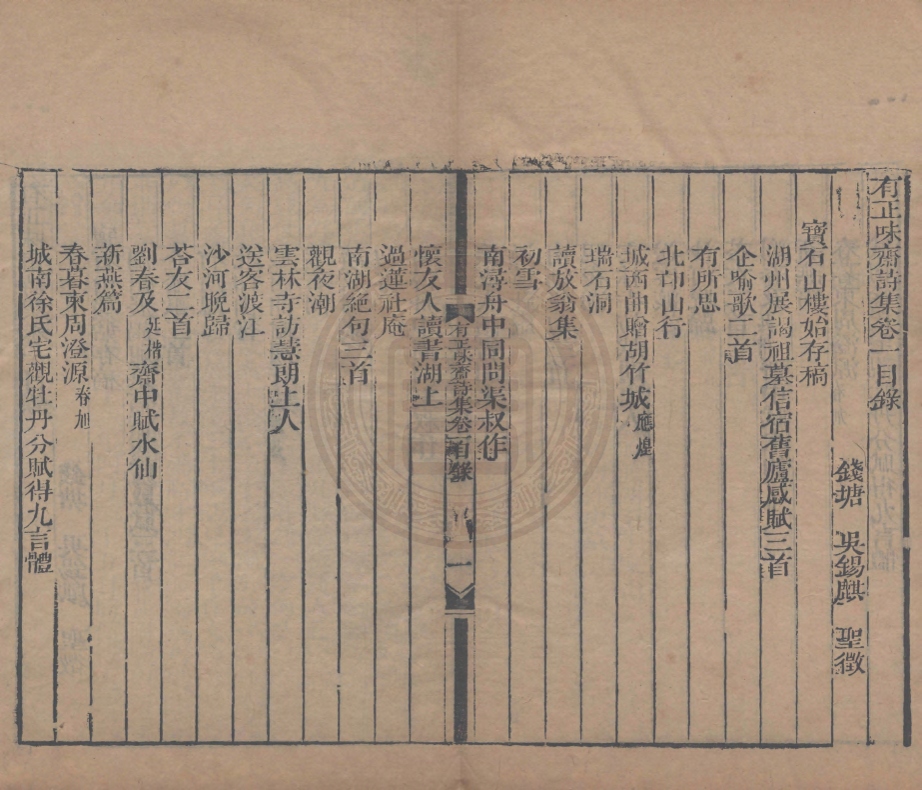 有正味齋詩集卷一目錄
錢塘　吳錫麒　聖徵
寶石山樓始存稿
湖州展謁祖墓信宿舊廬感賦三首
企喻歌二首
有所思
北邙山行
城西曲贈胡竹城應煌
瑞石洞
讀放翁集
初雪
南潯舟中同問渠叔作
有正味齋詩集卷一目錄　一
懷友人讀書湖上
過蓮社庵
南湖絕句三首
觀夜潮
雲林寺訪慧朗上人
送客渡江
沙河晚歸
荅友二首
劉春及延楷齋中賦水仙
新燕篇
春暮柬周澄源春旭
城南徐氏宅觀牡丹分賦得九言體